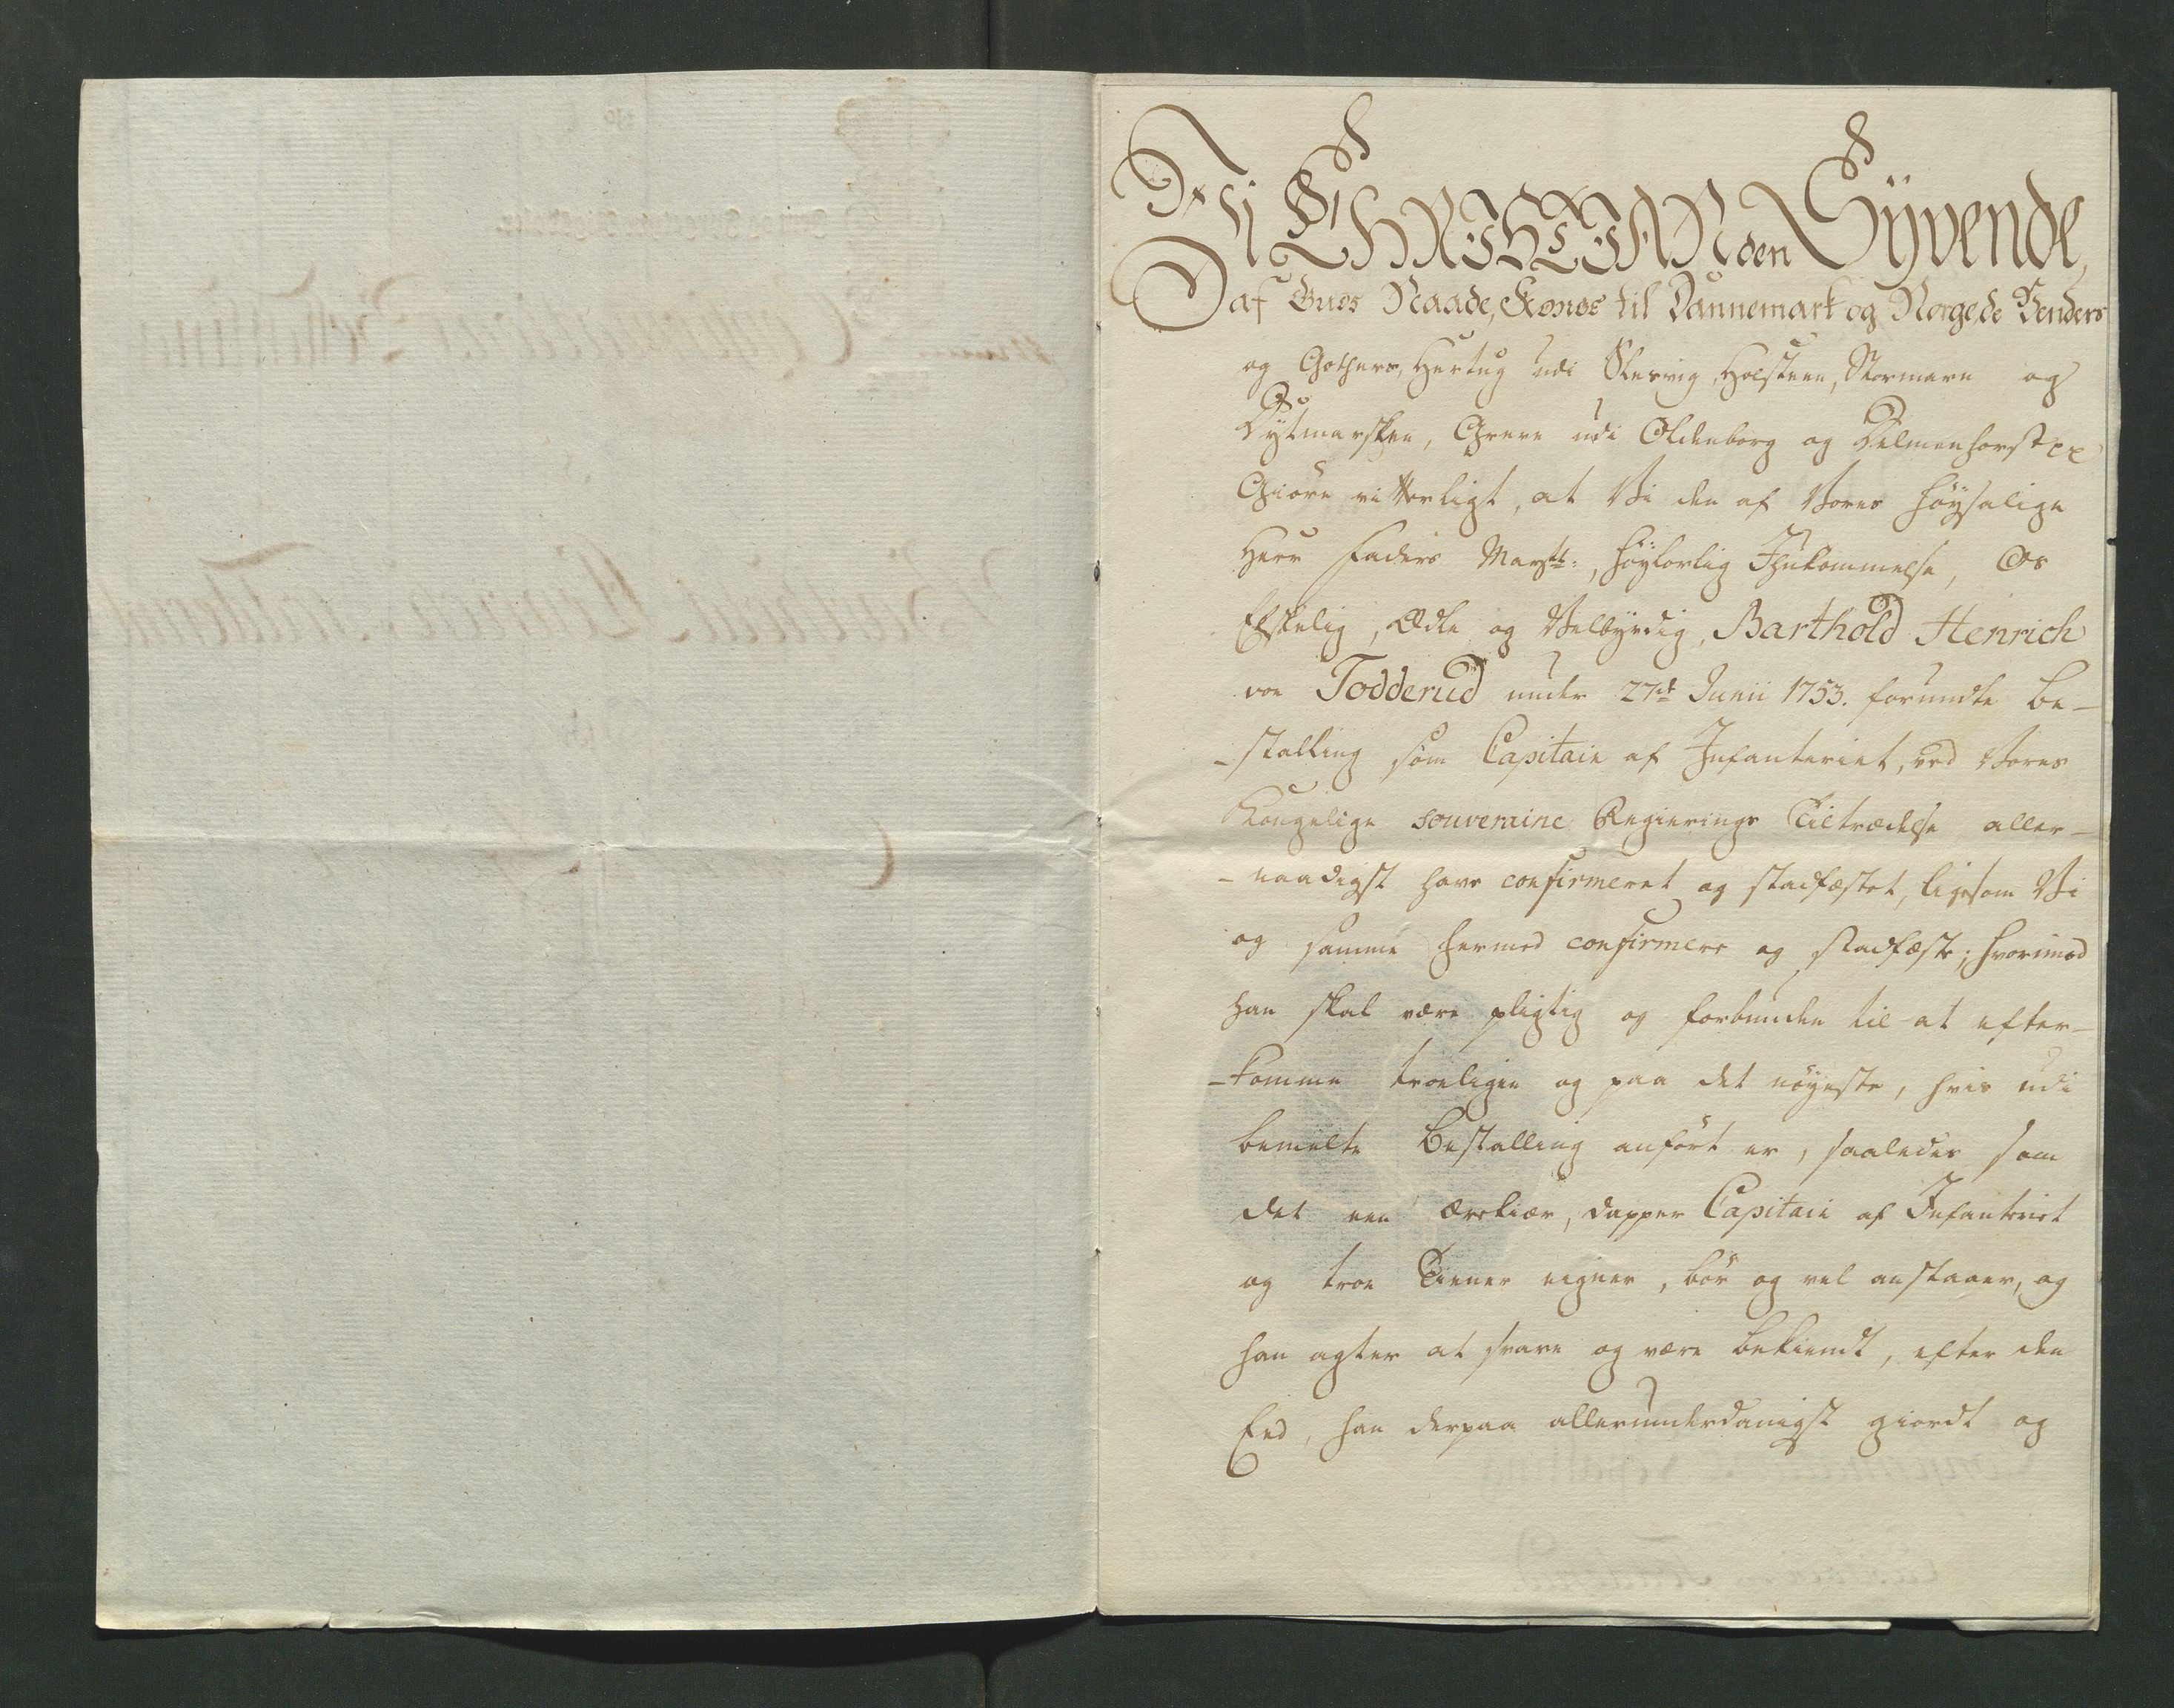 Vi CHRISTIAN den Syvende,
af Guds Naade, Konge til Dannemark og Norge, de Venders
og Gothers, Hertug udi Slesvig, Holsteen, Stormarn og
Dytmarsken, Greve udi Oldenborg og Delmenhorst
Giøre vitterligt, at Vi den af Vores høysalige
Herr Faders Maystt:, høylovlig Ihukommelse, Os
Elskelig, Ædle og Velbyrdig, Barthold Henrich
von Todderud under 27de Junii 1753. forundte be-
-stalling som Capitain af Infanteriet, ved Vores
Kongelige souveraine Regierings Tiltrædelse aller-
-naadigst have confirmeret og stadfæstet, ligesom Vi
og samme hermed confirmere og stadfæste; hvorimod
han skal være pligtig og forbunden til at efter-
-komme troeligen og paa det nøyeste, hvis udi
bemelte Bestalling anført er, saaledes som
det een ærekiær, dapper Capitain af Infanteriet
og troe Tiener eigner, bør og vel anstaaer, og
han agter at svare og være bekiendt, efter den
Eed, han derpaa allerunderdanigst giordt og